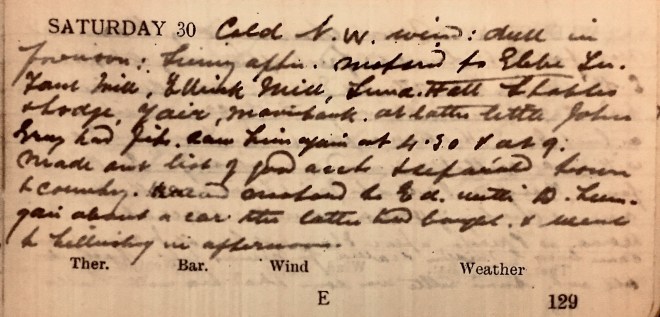 SATURDAY 30 Cold N.W. wind: dull in
forenoon: Sunny aftn. motored to Glebe
Mill, Ettrick Mill, Stables
& Lodge, Yair, at latter little John
Gray had fits. saw him again at 4.30 & at 9.
Made out list of good accts & separated town
& country. motored to Ed. with D.
about a car the latter had bought. & went
to in afternoon.
Ther. Bar. Wind Weather
E 129